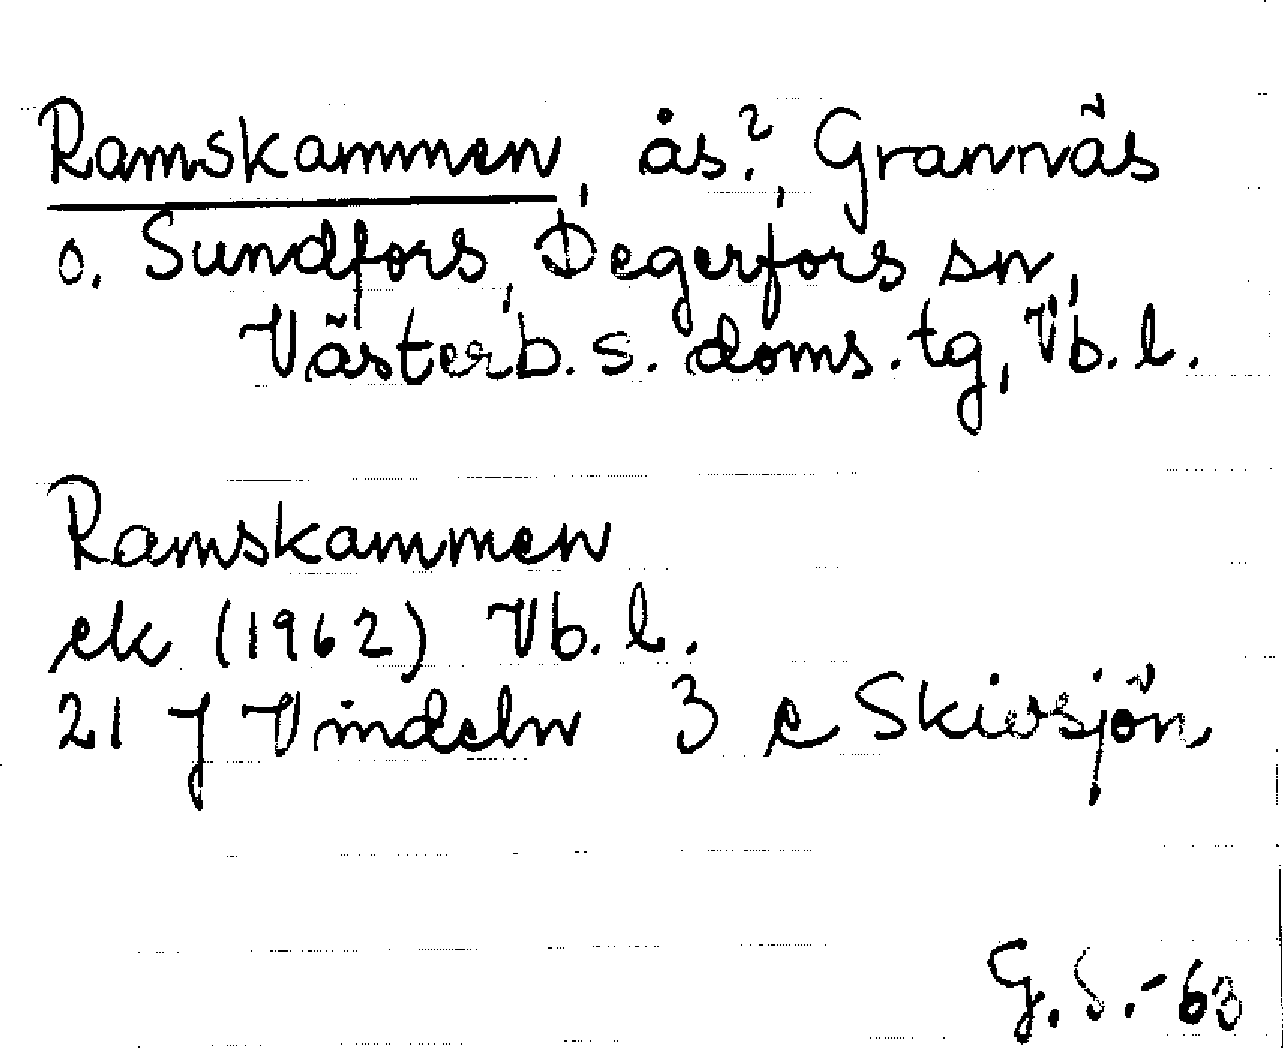 Ramskammen, ås?, Grannäs
o. Sundfors, Degerfors sn,
Västerb. s. doms. tg, Vb. l.
Ramskammen
ek (1962) Vb. l.
21 J Vindeln 3 e Skivsjön
G. S. -63